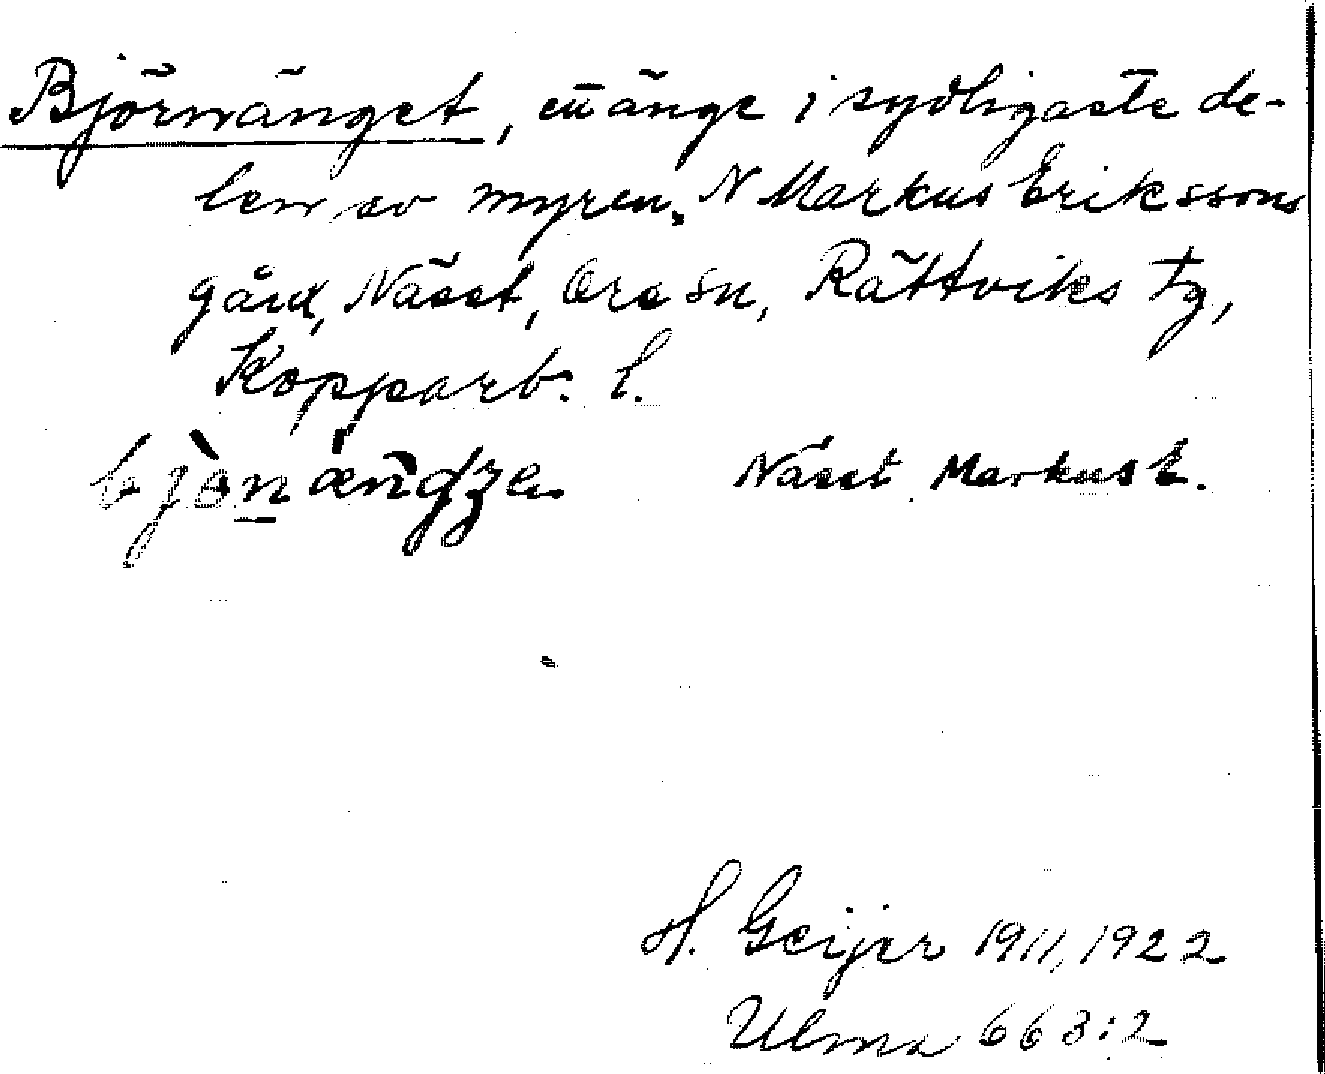 Björnänget, ett änge i sydligaste de-
len av myren, N Markus Erikssons
gård, Näset, Ore sn, Rättviks tg,
Kopparb. l.
Näset Markus E.
H. Geijer 1911, 1922
Ulma 663:2